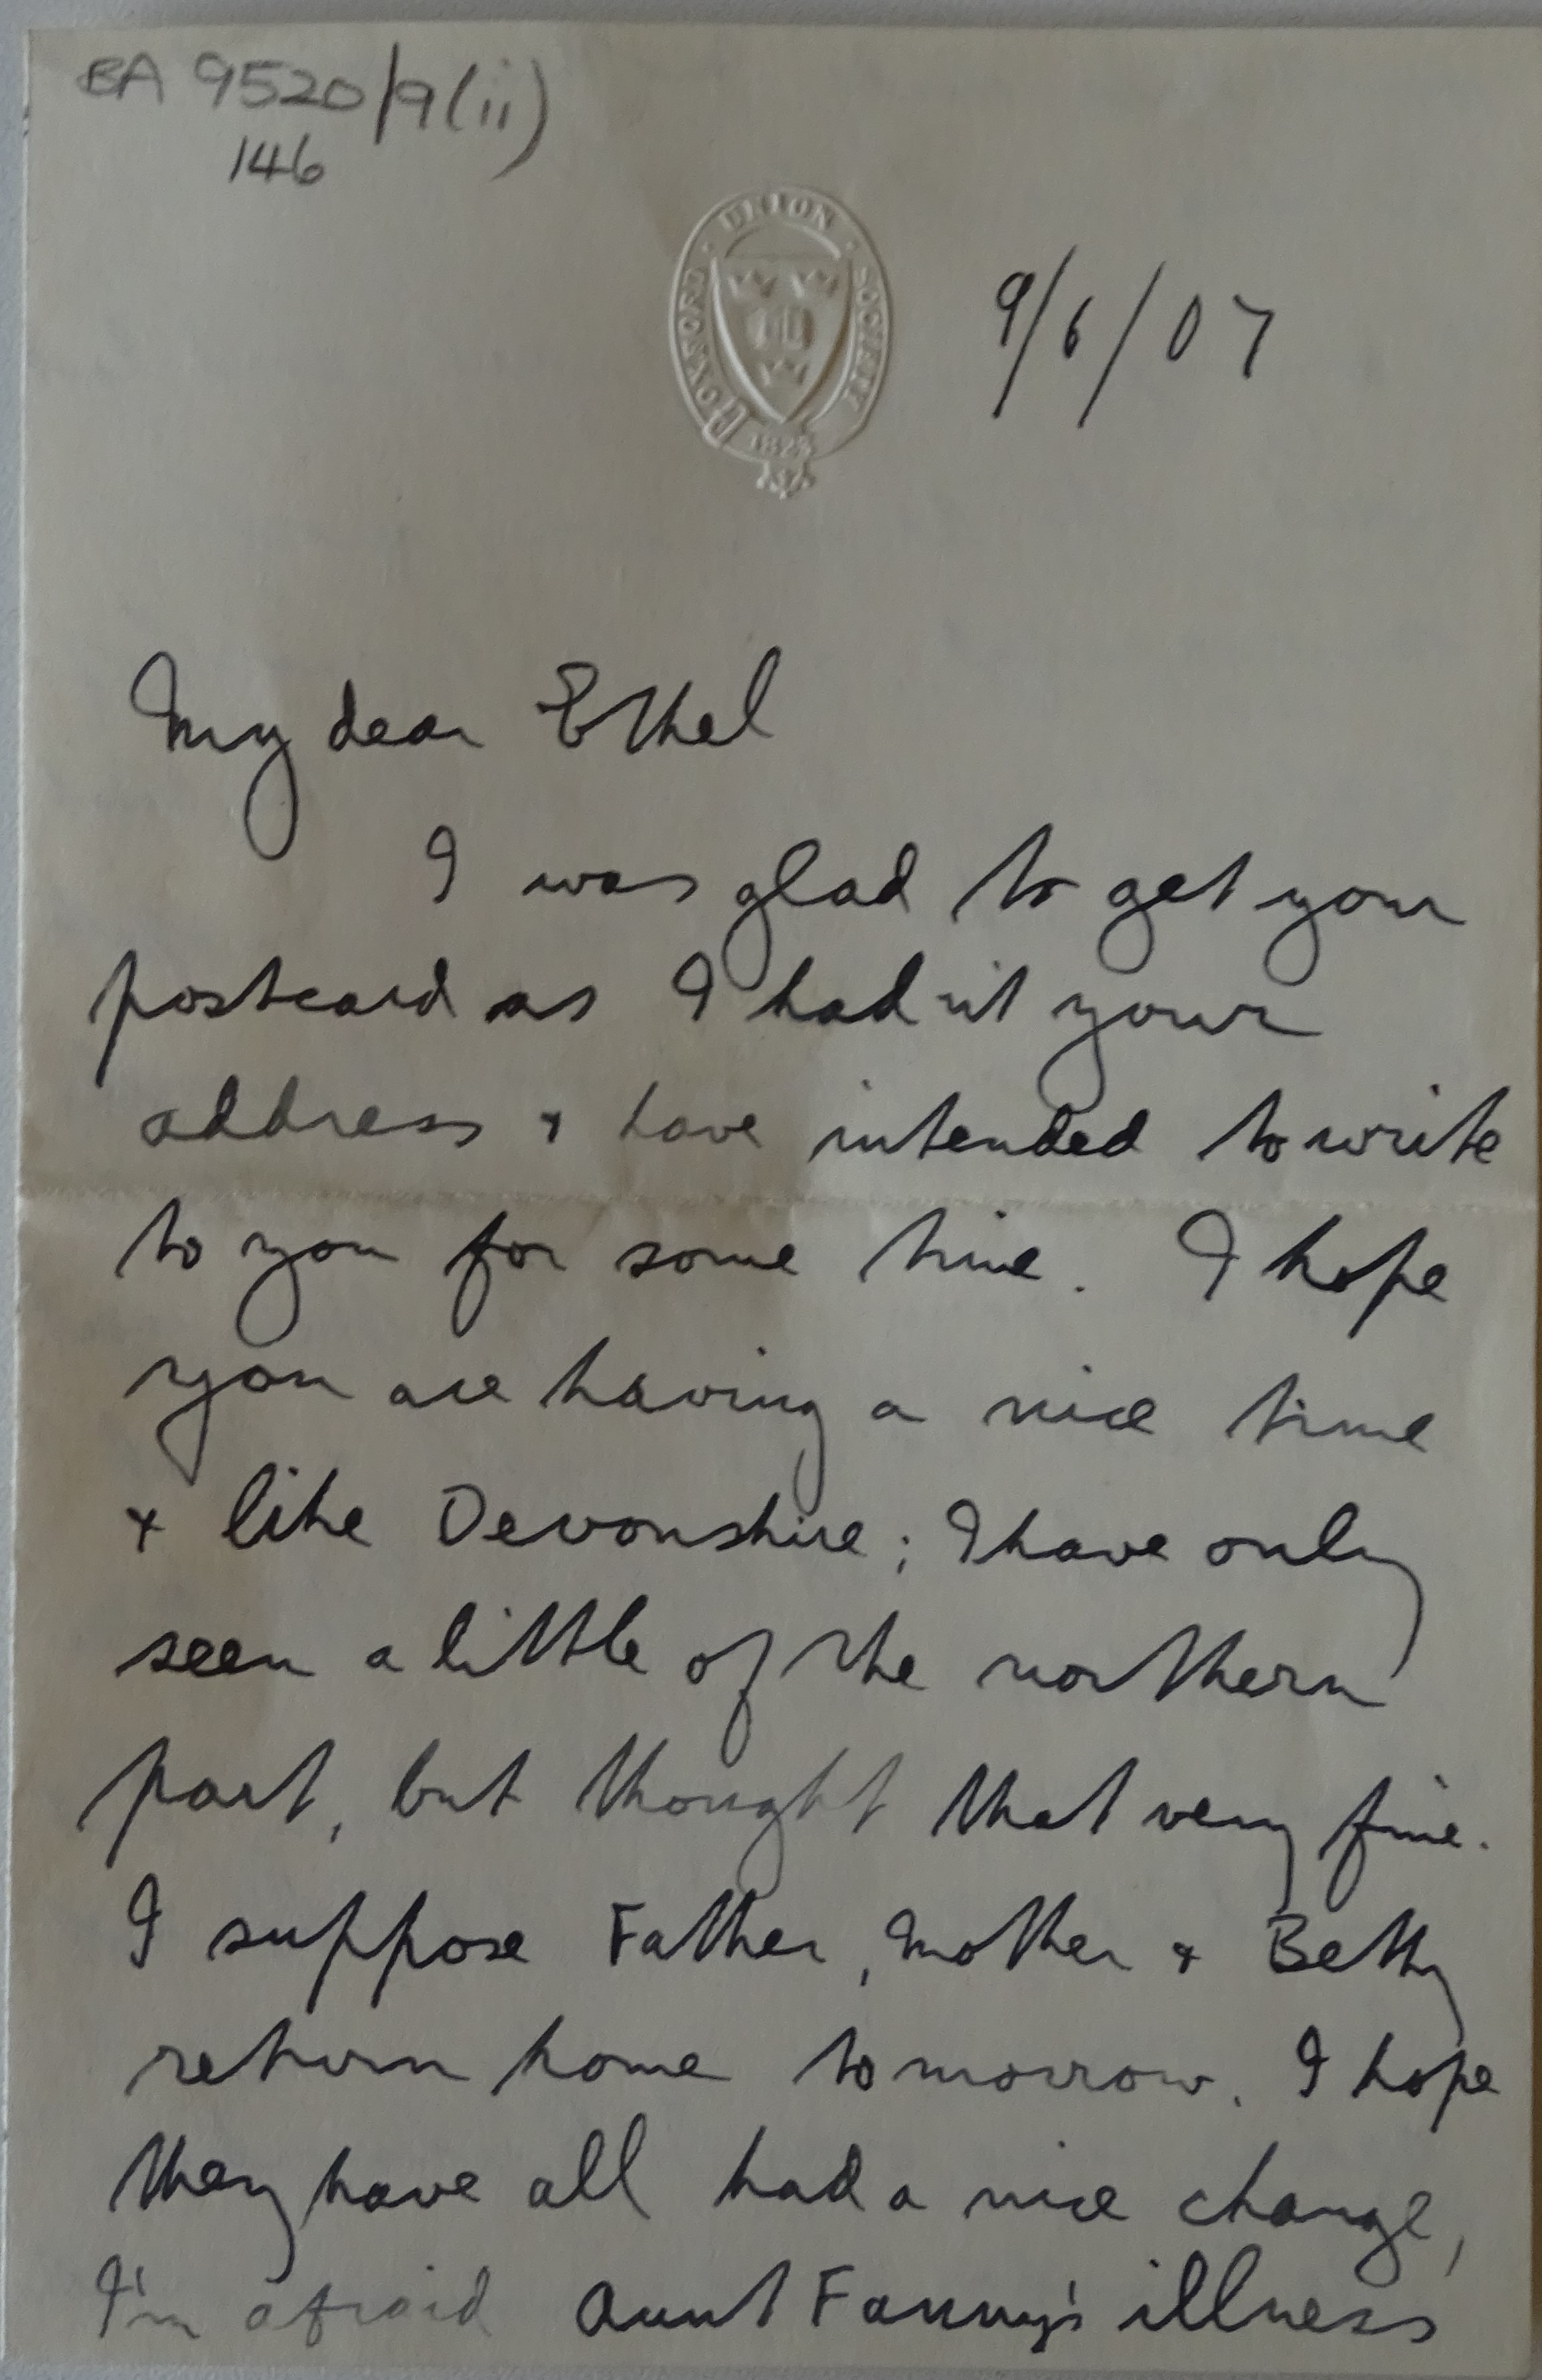 BA 9520/9(ii)
146
OXFORD · UNION · SOCIETY
1823
9/6/07
My dear Ethel
I was glad to get your
postcard as I hadn't your
address & have intended to write
to you for some time. I hope
you are having a nice time
& like Devonshire; I have only
seen a little of the northern
part, but thought that very fine.
I suppose Father, Mother & Betty
return home tomorrow. I hope
they have all had a nice change,
I'm afraid Aunt Fanny's illness